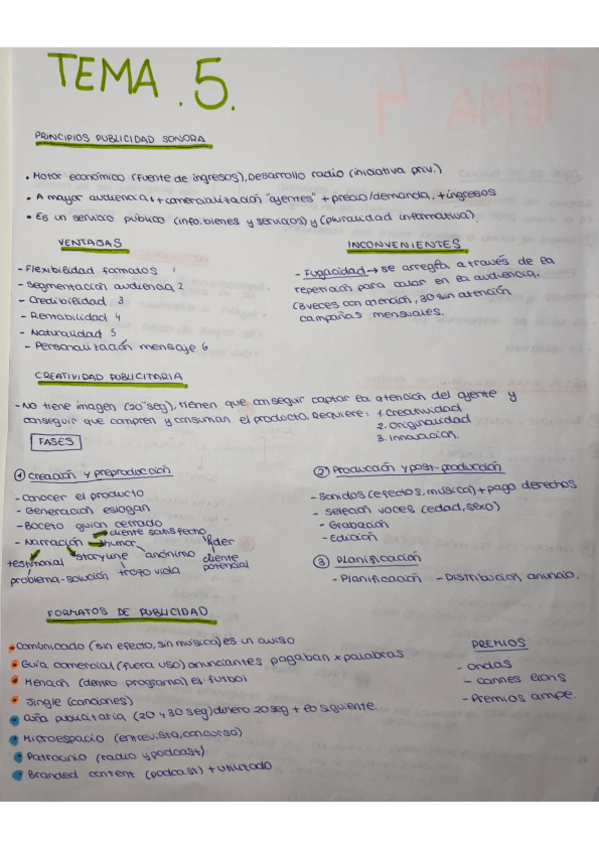 TEMA .5.
PRINCIPIOS PUBLICIDAD SONORA
• Motor económico (fuente de ingresos), Desarrollo radio (iniciativa priv.)
• A mayor audiencia, + comercialización "oyentes" + precio/demanda, + ingresos
• Es un servicio público (info. bienes y servicios) y (pluralidad informativa).
VENTAJAS
- Flexibilidad formatos 1
- segmentación audiencia 2
- Credibilidad 3
- Rentabilidad 4
- Naturalidad 5
- Personalización mensaje 6
INCONVENIENTES
- Fugacidad → se arregla a través de la
repetición para calar en la audiencia.
(3 veces con atención, 30 sin atención
campañas mensuales.
CREATIVIDAD PUBLICITARIA
- NO tiene imagen (20"seg), tienen que conseguir captar la atención del oyente y
conseguir que compren y consuman el producto. Requiere: 1. Creatividad
2. Originalidad
3. Innovación.
FASES
① Creación y preproducción
- Conocer el producto
- Generación eslogan
- Boceto guion cerrado
- Narración → humor
cliente satisfecho
líder
testimonial storyline anónimo cliente
potencial
problema-solución trozo vida
② Producción y post-producción
- Sonidos (efectos, música) + pago derechos
- selección voces (edad, sexo)
- Grabación
- Edición
③ Planificación
- Planificación - Distribución anuncio.
FORMATOS DE PUBLICIDAD
• Comunicado (sin efecto, sin música) es un aviso
• Guía comercial (fuera uso) anunciantes pagaban x palabras.
• Mención (dentro programa) ej futbol
• Jingle (canciones)
• cuña publicitaria (20 y 30 seg) dinero 20 seg + lo siguiente.
• Microespacio (entrevista, concurso)
• Patrocinio (radio y podcast)
• Branded content (podcast) + utilizado
PREMIOS
- ondas
- cannes lions
- Premios ampe.